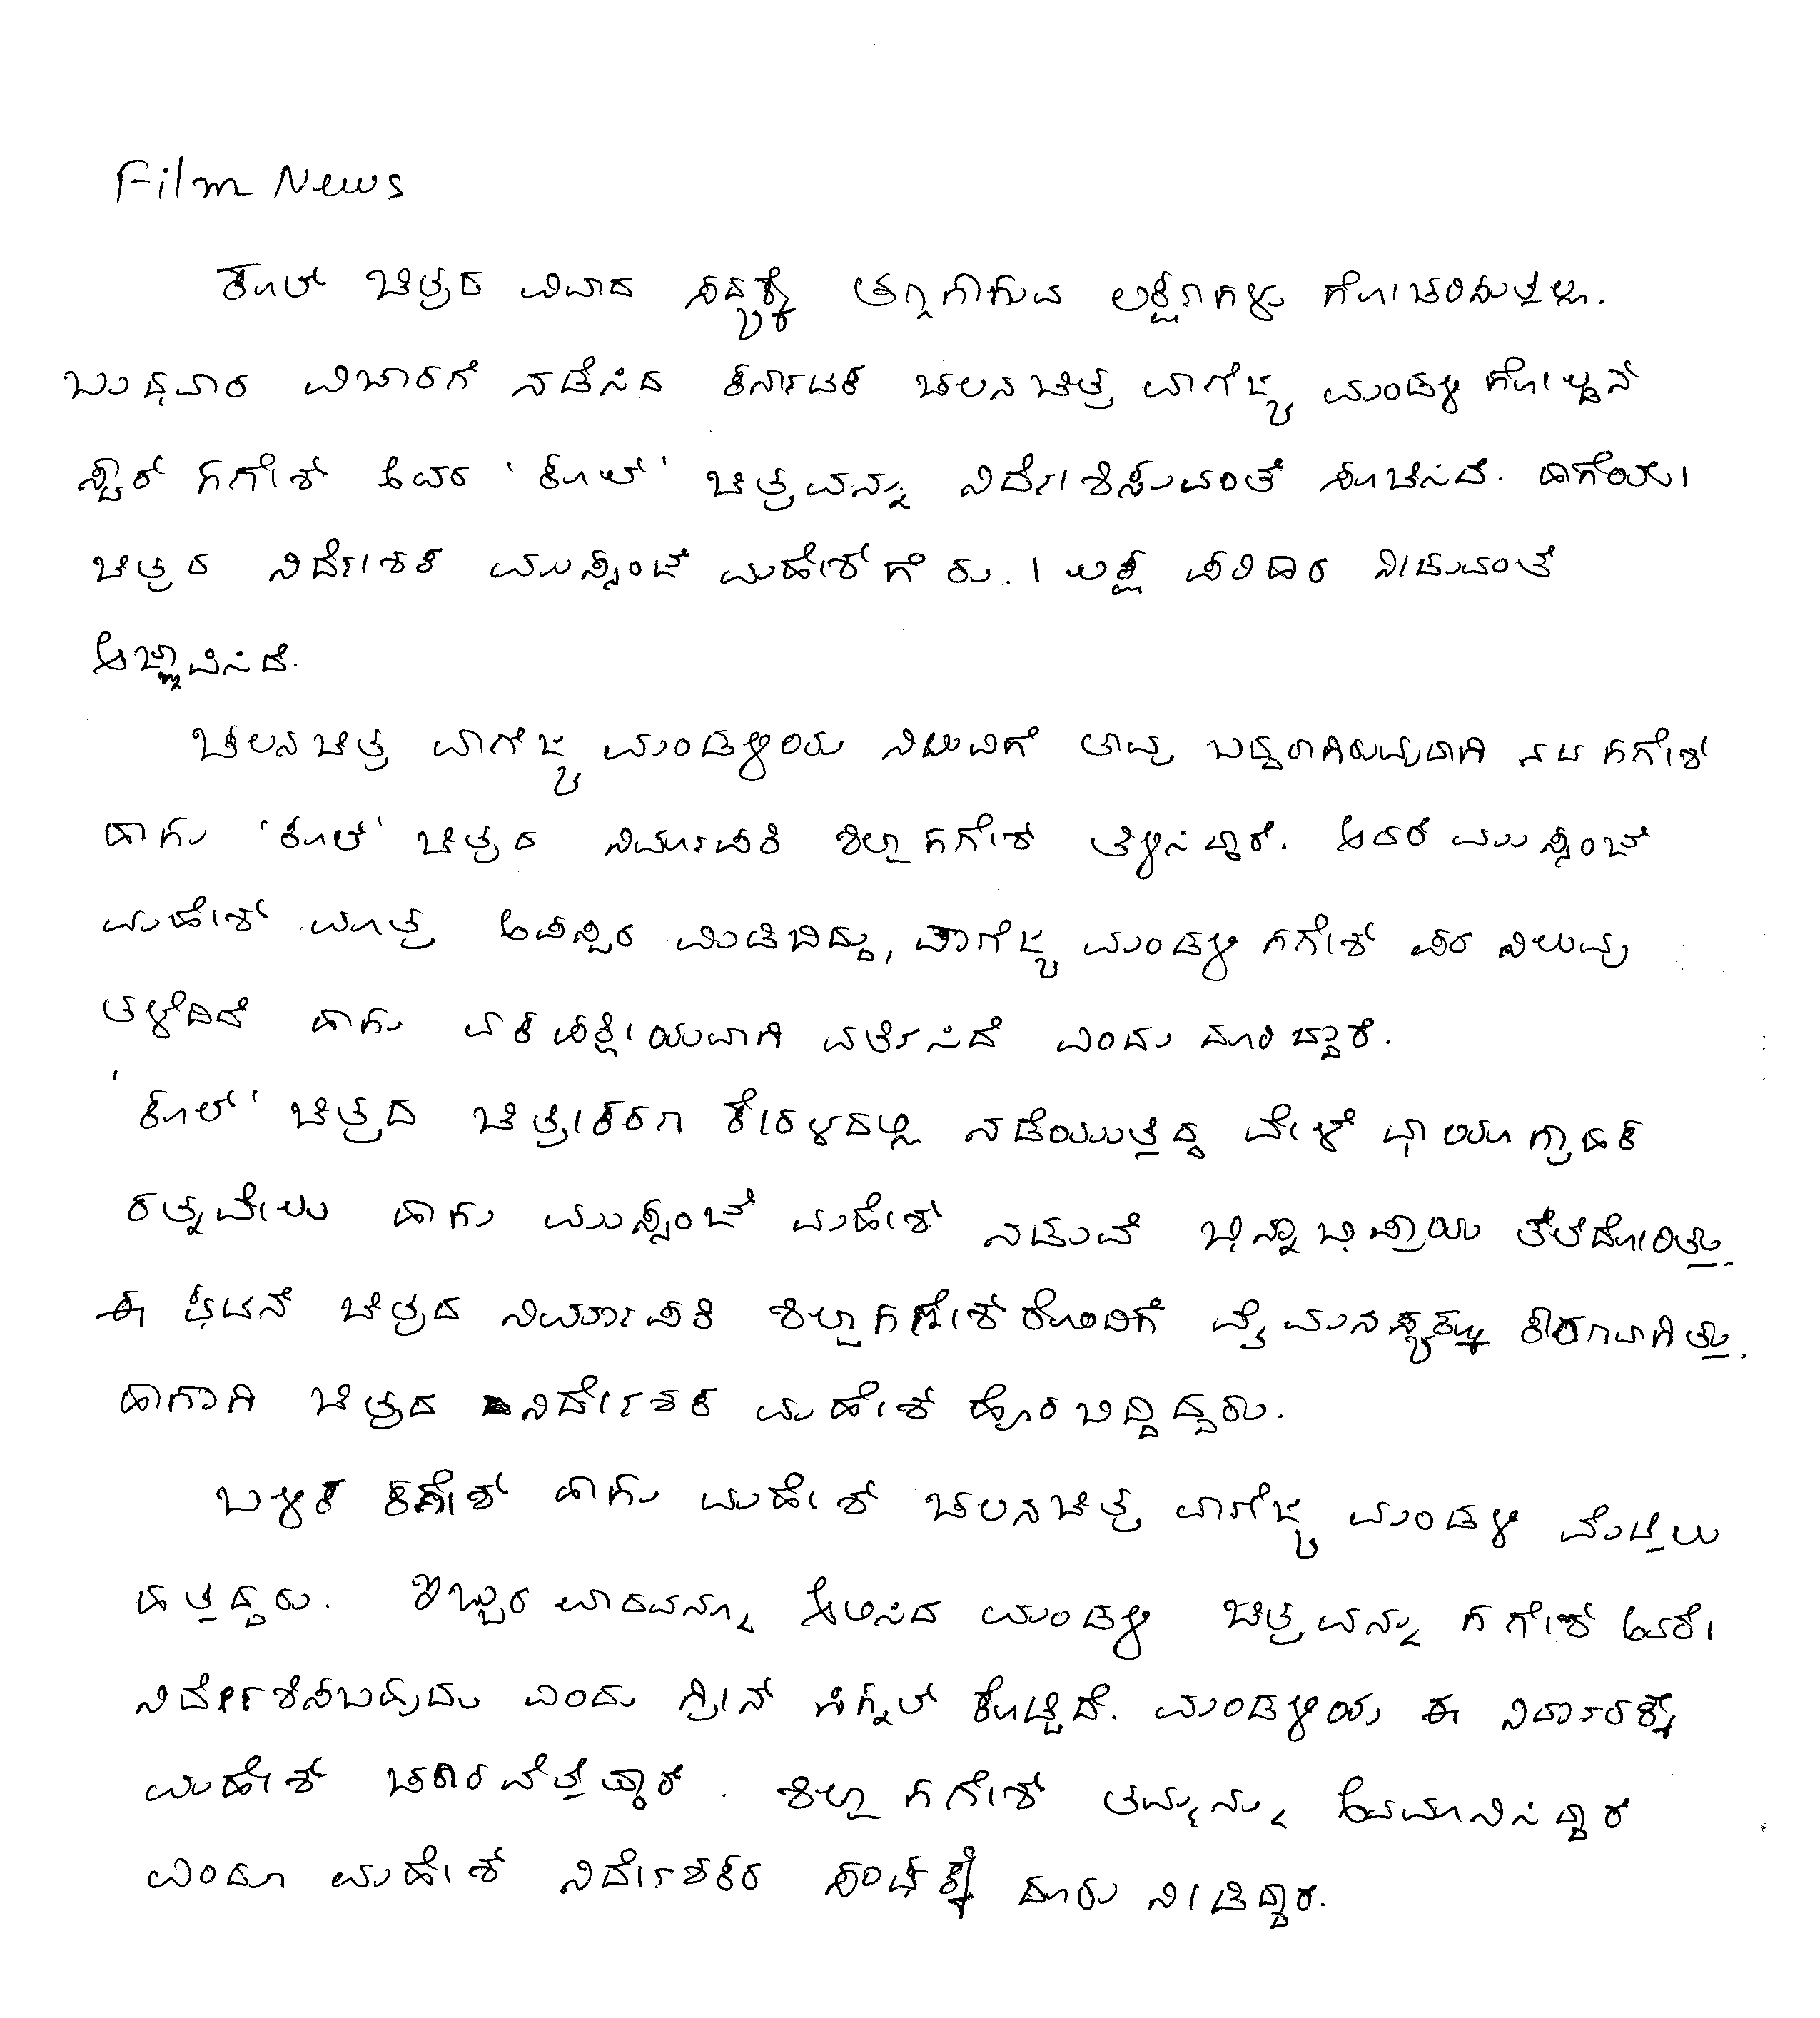 Film News
ಕೂಲ್ ಚಿತ್ರದ ವಿವಾದ ಸದ್ಯಕ್ಕೆ ತಣ್ಣಗಾಗುವ ಲಕ್ಷಣಗಳು ಗೋಚರಿಸುತ್ತಿಲ್ಲ.
ಬುಧವಾರ ವಿಚಾರಣೆ ನಡೆಸಿದ ಕರ್ನಾಟಕ ಚಲನಚಿತ್ರ ವಾಣಿಜ್ಯ ಮಂಡಳಿ ಗೋಲ್ಡನ್
ಸ್ಟಾರ್ ಗಣೇಶ್ ಅವರ 'ಕೂಲ್' ಚಿತ್ರವನ್ನು ನಿರ್ದೇಶಿಸುವಂತೆ ಸೂಚಿಸಿದೆ. ಹಾಗೆಯೇ
ಚಿತ್ರದ ನಿರ್ದೇಶಕ ಮುಸ್ಸಂಜೆ ಮಹೇಶ್‌ಗೆ ರು. 1 ಲಕ್ಷ ಪರಿಹಾರ ನೀಡುವಂತೆ
ಆಜ್ಞಾಪಿಸಿದೆ.
ಚಲನಚಿತ್ರ ವಾಣಿಜ್ಯ ಮಂಡಳಿಯ ನಿಲುವಿಗೆ ತಾವು ಬದ್ಧರಾಗಿರುವುದಾಗಿ ನಟ ಗಣೇಶ್
ಹಾಗು 'ಕೂಲ್' ಚಿತ್ರದ ನಿರ್ಮಾಪಕಿ ಶಿಲ್ಪಾ ಗಣೇಶ್ ತಿಳಿಸಿದ್ದಾರೆ. ಆದರೆ ಮುಸ್ಸಂಜೆ
ಮಹೇಶ್ ಮಾತ್ರ ಅಪಸ್ವರ ಮಿಡಿದಿದ್ದು, ವಾಣಿಜ್ಯ ಮಂಡಳಿ ಗಣೇಶ್ ಪರ ನಿಲುವು
ತಳೆದಿದೆ ಹಾಗು ಏಕಪಕ್ಷೀಯವಾಗಿ ವರ್ತಿಸಿದೆ ಎಂದು ದೂರಿದ್ದಾರೆ.
'ಕೂಲ್' ಚಿತ್ರದ ಚಿತ್ರೀಕರಣ ಕೇರಳದಲ್ಲಿ ನಡೆಯುತ್ತಿದ್ದ ವೇಳೆ ಛಾಯಾಗ್ರಾಹಕ
ರತ್ನವೇಲು ಹಾಗು ಮುಸ್ಸಂಜೆ ಮಹೇಶ್ ನಡುವೆ ಭಿನ್ನಾಭಿಪ್ರಾಯ ತಲೆದೋರಿತ್ತು.
ಈ ಘಟನೆ ಚಿತ್ರದ ನಿರ್ಮಾಪಕಿ ಶಿಲ್ಪಾ ಗಣೇಶ್‌ರೊಂದಿಗೆ ವೈಮನಸ್ಯಕ್ಕೂ ಕಾರಣವಾಗಿತ್ತು.
ಹಾಗಾಗಿ ಚಿತ್ರದ ನಿರ್ದೇಶಕ ಮಹೇಶ್ ಹೊರಬಿದ್ದಿದ್ದರು.
ಬಳಿಕ ಗಣೇಶ್ ಹಾಗು ಮಹೇಶ್ ಚಲನಚಿತ್ರ ವಾಣಿಜ್ಯ ಮಂಡಳಿ ಮೆಟ್ಟಿಲು
ಹತ್ತಿದ್ದರು. ಇಬ್ಬರ ವಾದವನ್ನೂ ಆಲಿಸಿದ ಮಂಡಳಿ ಚಿತ್ರವನ್ನು ಗಣೇಶ್ ಅವರೇ
ನಿರ್ದೇಶಿಸಬಹುದು ಎಂದು ಗ್ರೀನ್ ಸಿಗ್ನಲ್ ಕೊಟ್ಟಿದೆ. ಮಂಡಳಿಯ ಈ ನಿರ್ಧಾರಕ್ಕೆ
ಮಹೇಶ್ ಚಕಾರವೆತ್ತಿದ್ದಾರೆ. ಶಿಲ್ಪಾ ಗಣೇಶ್ ತಮ್ಮನ್ನು ಅವಮಾನಿಸಿದ್ದಾರೆ
ಎಂದೂ ಮಹೇಶ್ ನಿರ್ದೇಶಕರ ಸಂಘಕ್ಕೆ ದೂರು ನೀಡಿದ್ದಾರೆ.